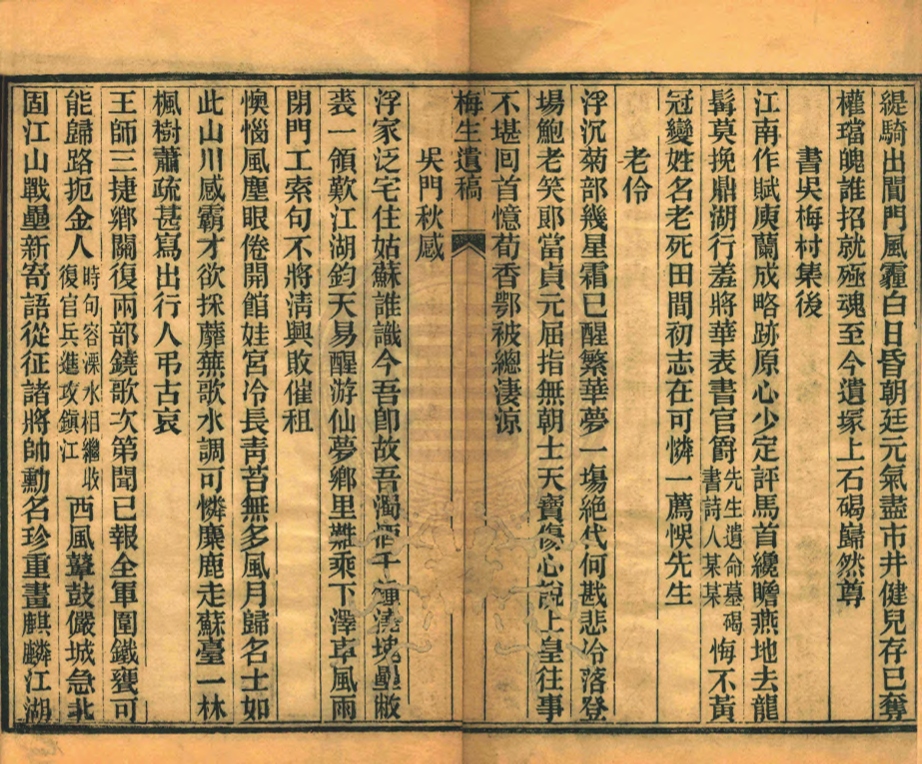 緹騎出閶門風霾白日昏朝廷元氣盡市井健兒存已奪
權璫魄誰招就殛魂至今遺塚上石碣巋然尊
書吳梅村集後
江南作賦庾蘭成略跡原心少定評馬首纔瞻燕地去龍
髯莫挽鼎湖行羞將華表書官爵先生遺命墓碣書詩人某某悔不黃
冠變姓名老死田間初志在可憐一薦悞先生
老伶
浮沉菊部幾星霜已醒繁華夢一場絕代何戡悲冷落登
場鮑老笑郎當貞元屈指無朝士天寶傷心說上皇往事
不堪回首憶荀香鄂被總淒涼
梅生遺稿
吳門秋感
浮家泛宅住姑蘇誰識今吾卽故吾濁酒千鍾澆塊壘敝
裘一領歎江湖鈞天易醒游仙夢鄉里難乘下澤車風雨
閉門工索句不將淸興敗催租
懊惱風塵眼倦開館娃宮冷長靑苔無多風月歸名士如
此山川感霸才欲採蘼蕪歌水調可憐麋鹿走蘇臺一林
楓樹蕭疏甚寫出行人弔古哀
王師三捷鄉關復兩部鐃歌次第聞已報全軍圍鐵甕可
能歸路扼金人時句容溧水相繼收復官兵進攻鎭江西風鼙鼓儼城急北
固江山戰壘新寄語從征諸將帥勳名珍重畫麒麟江湖